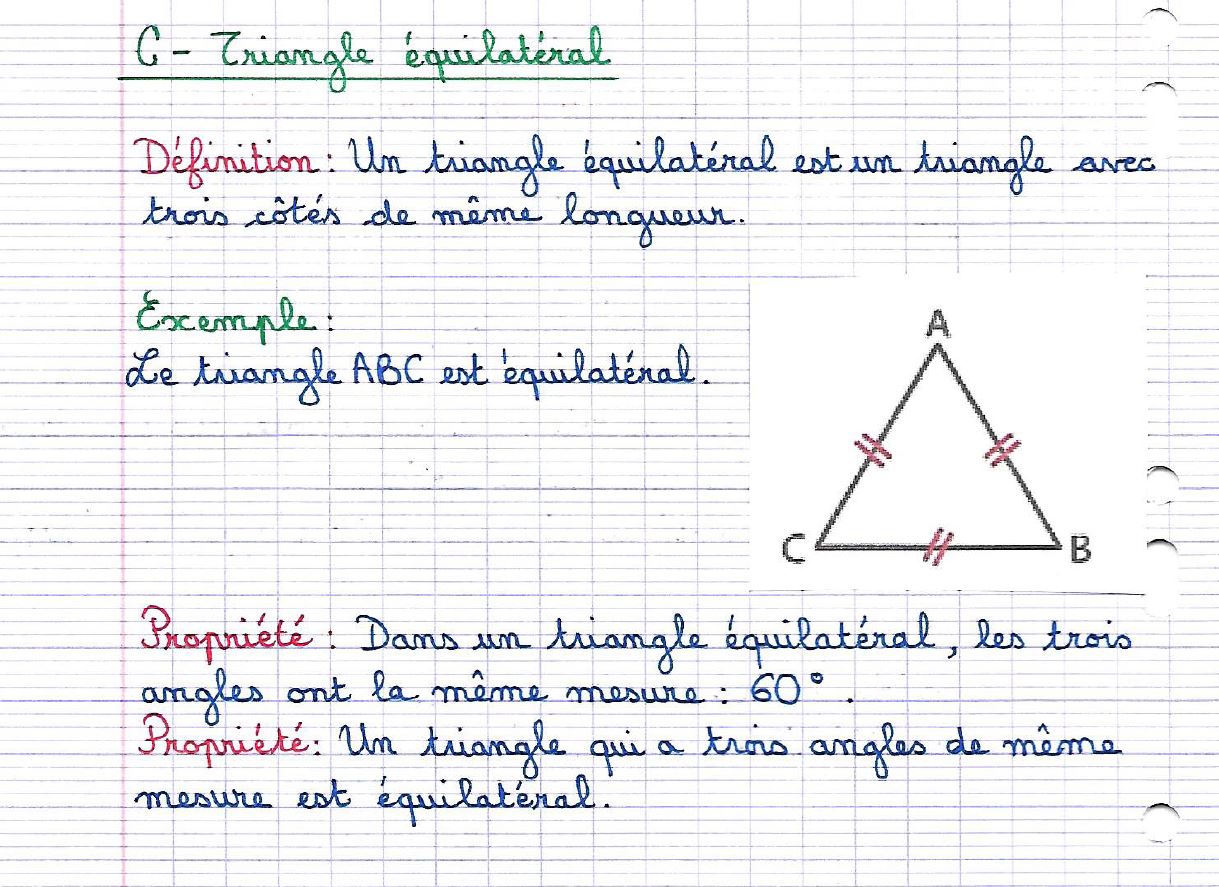 C - Triangle équilatéral
Définition : Un triangle équilatéral est un triangle avec
trois côtés de même longueur.
Exemple :
Le triangle ABC est équilatéral.
A
C
B
Propriété : Dans un triangle équilatéral, les trois
angles ont la même mesure : 60°.
Propriété : Un triangle qui a trois angles de même
mesure est équilatéral.